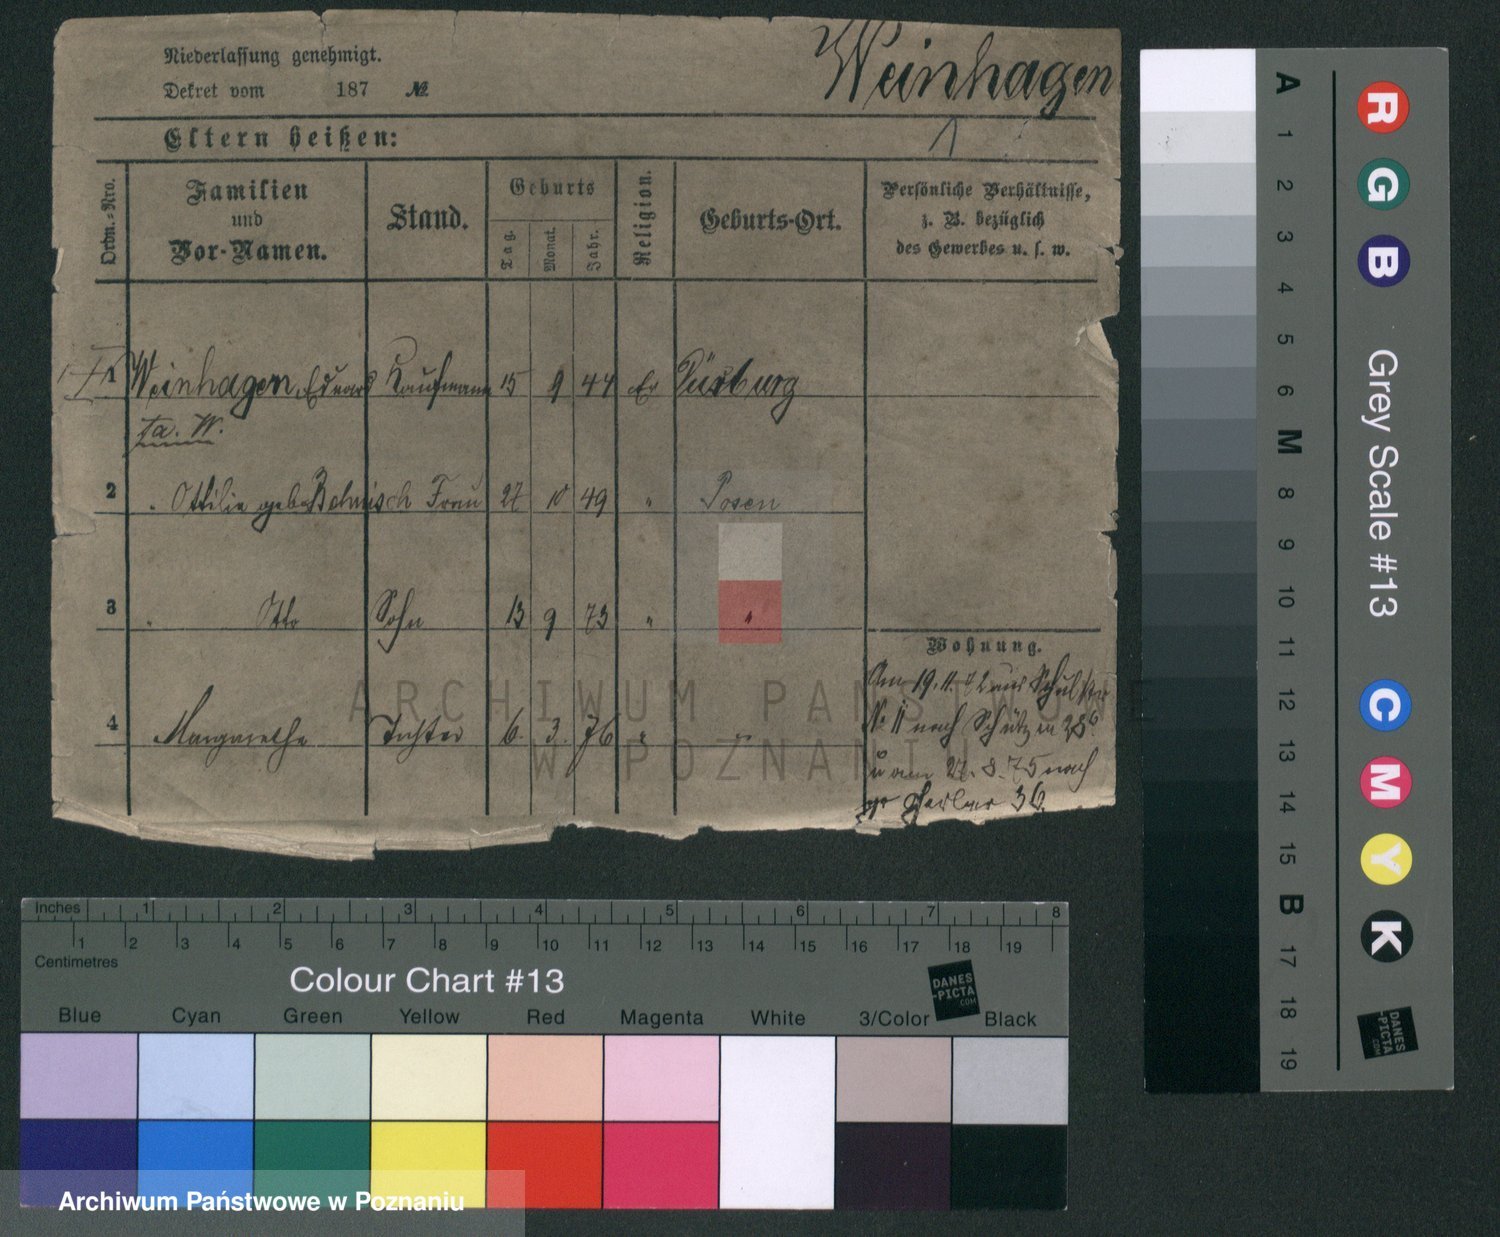 Niederlassung genehmigt.
Weinhagen
Dekret vom 187 №
Eltern heißen:
1
Ordn.-Nro.
Familien
und
Vor-Namen.
Stand.
Geburts
Tag.
Monat.
Jahr.
Religion.
Geburts-Ort.
Persönliche Verhältnisse,
z. B. bezüglich
des Gewerbes u. s. w.
1 Weinhagen, Eduard Kaufmann 15 9 44 Ev
ta. W.
2 " Ottilie geb. Frau 27 10 49 " Posen
3 " Otto Sohn 13 9 73 " "
Wohnung.
Am 19. 11. 72 aus
4 Margarethe Tochter 6. 3. 76 " "
№ 11 nach Schützen 28b
u am 27. 8. 75 nach
gr Gerber 36.
ARCHIWUM PAŃSTWOWE
W POZNANIU
Inches 1 2 3 4 5 6 7 8
1 2 3 4 5 6 7 8 9 10 11 12 13 14 15 16 17 18 19
Centimetres
Colour Chart #13
DANES
-PICTA
.COM
Blue Cyan Green Yellow Red Magenta White 3/Color Black
Archiwum Państwowe w Poznaniu
A 1 2 3 4 5 6 M 8 9 10 11 12 13 14 15 B 17 18 19
R G B
Grey Scale #13
C M Y K
DANES
-PICTA
.COM